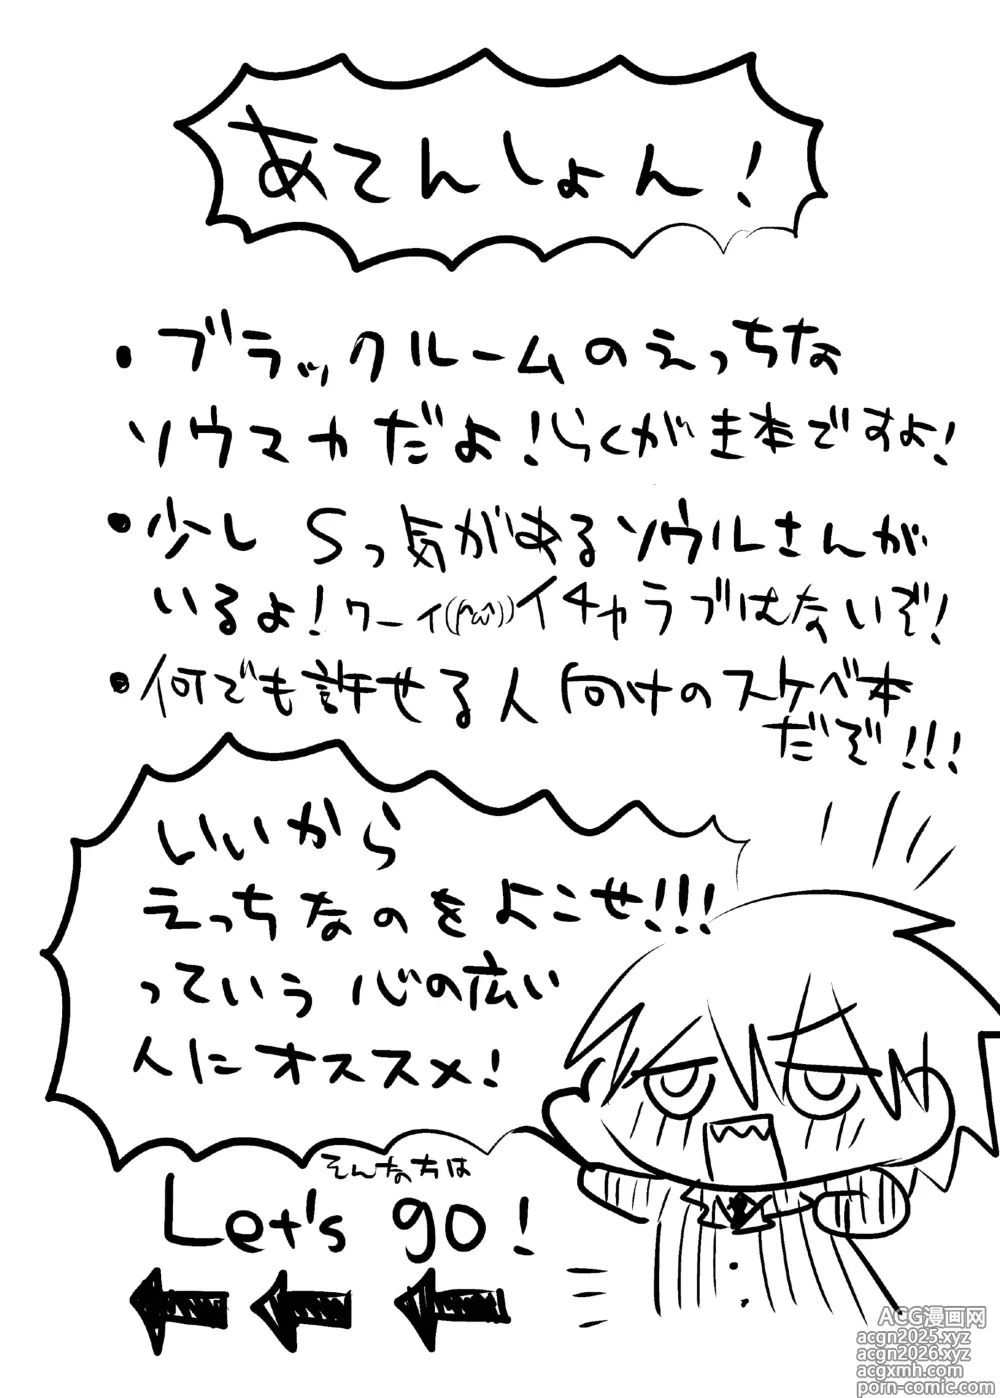 あてんしょん!
・ブラックルームのえっちな
ソウマカだよ!らくがき本ですよ!
・少しSっ気があるソウルさんが
いるよ!ワーイ((^ω^))イチャラブはないぞ!
・何でも許せる人向けのスケベ本
だぞ!!!
いいから
えっちなのをよこせ!!!
っていう心の広い
人にオススメ!
そんな方は
Let's go!
ACG漫画网
acgn2025.xyz
acgn2026.xyz
acgxmh.com
porn-comic.com